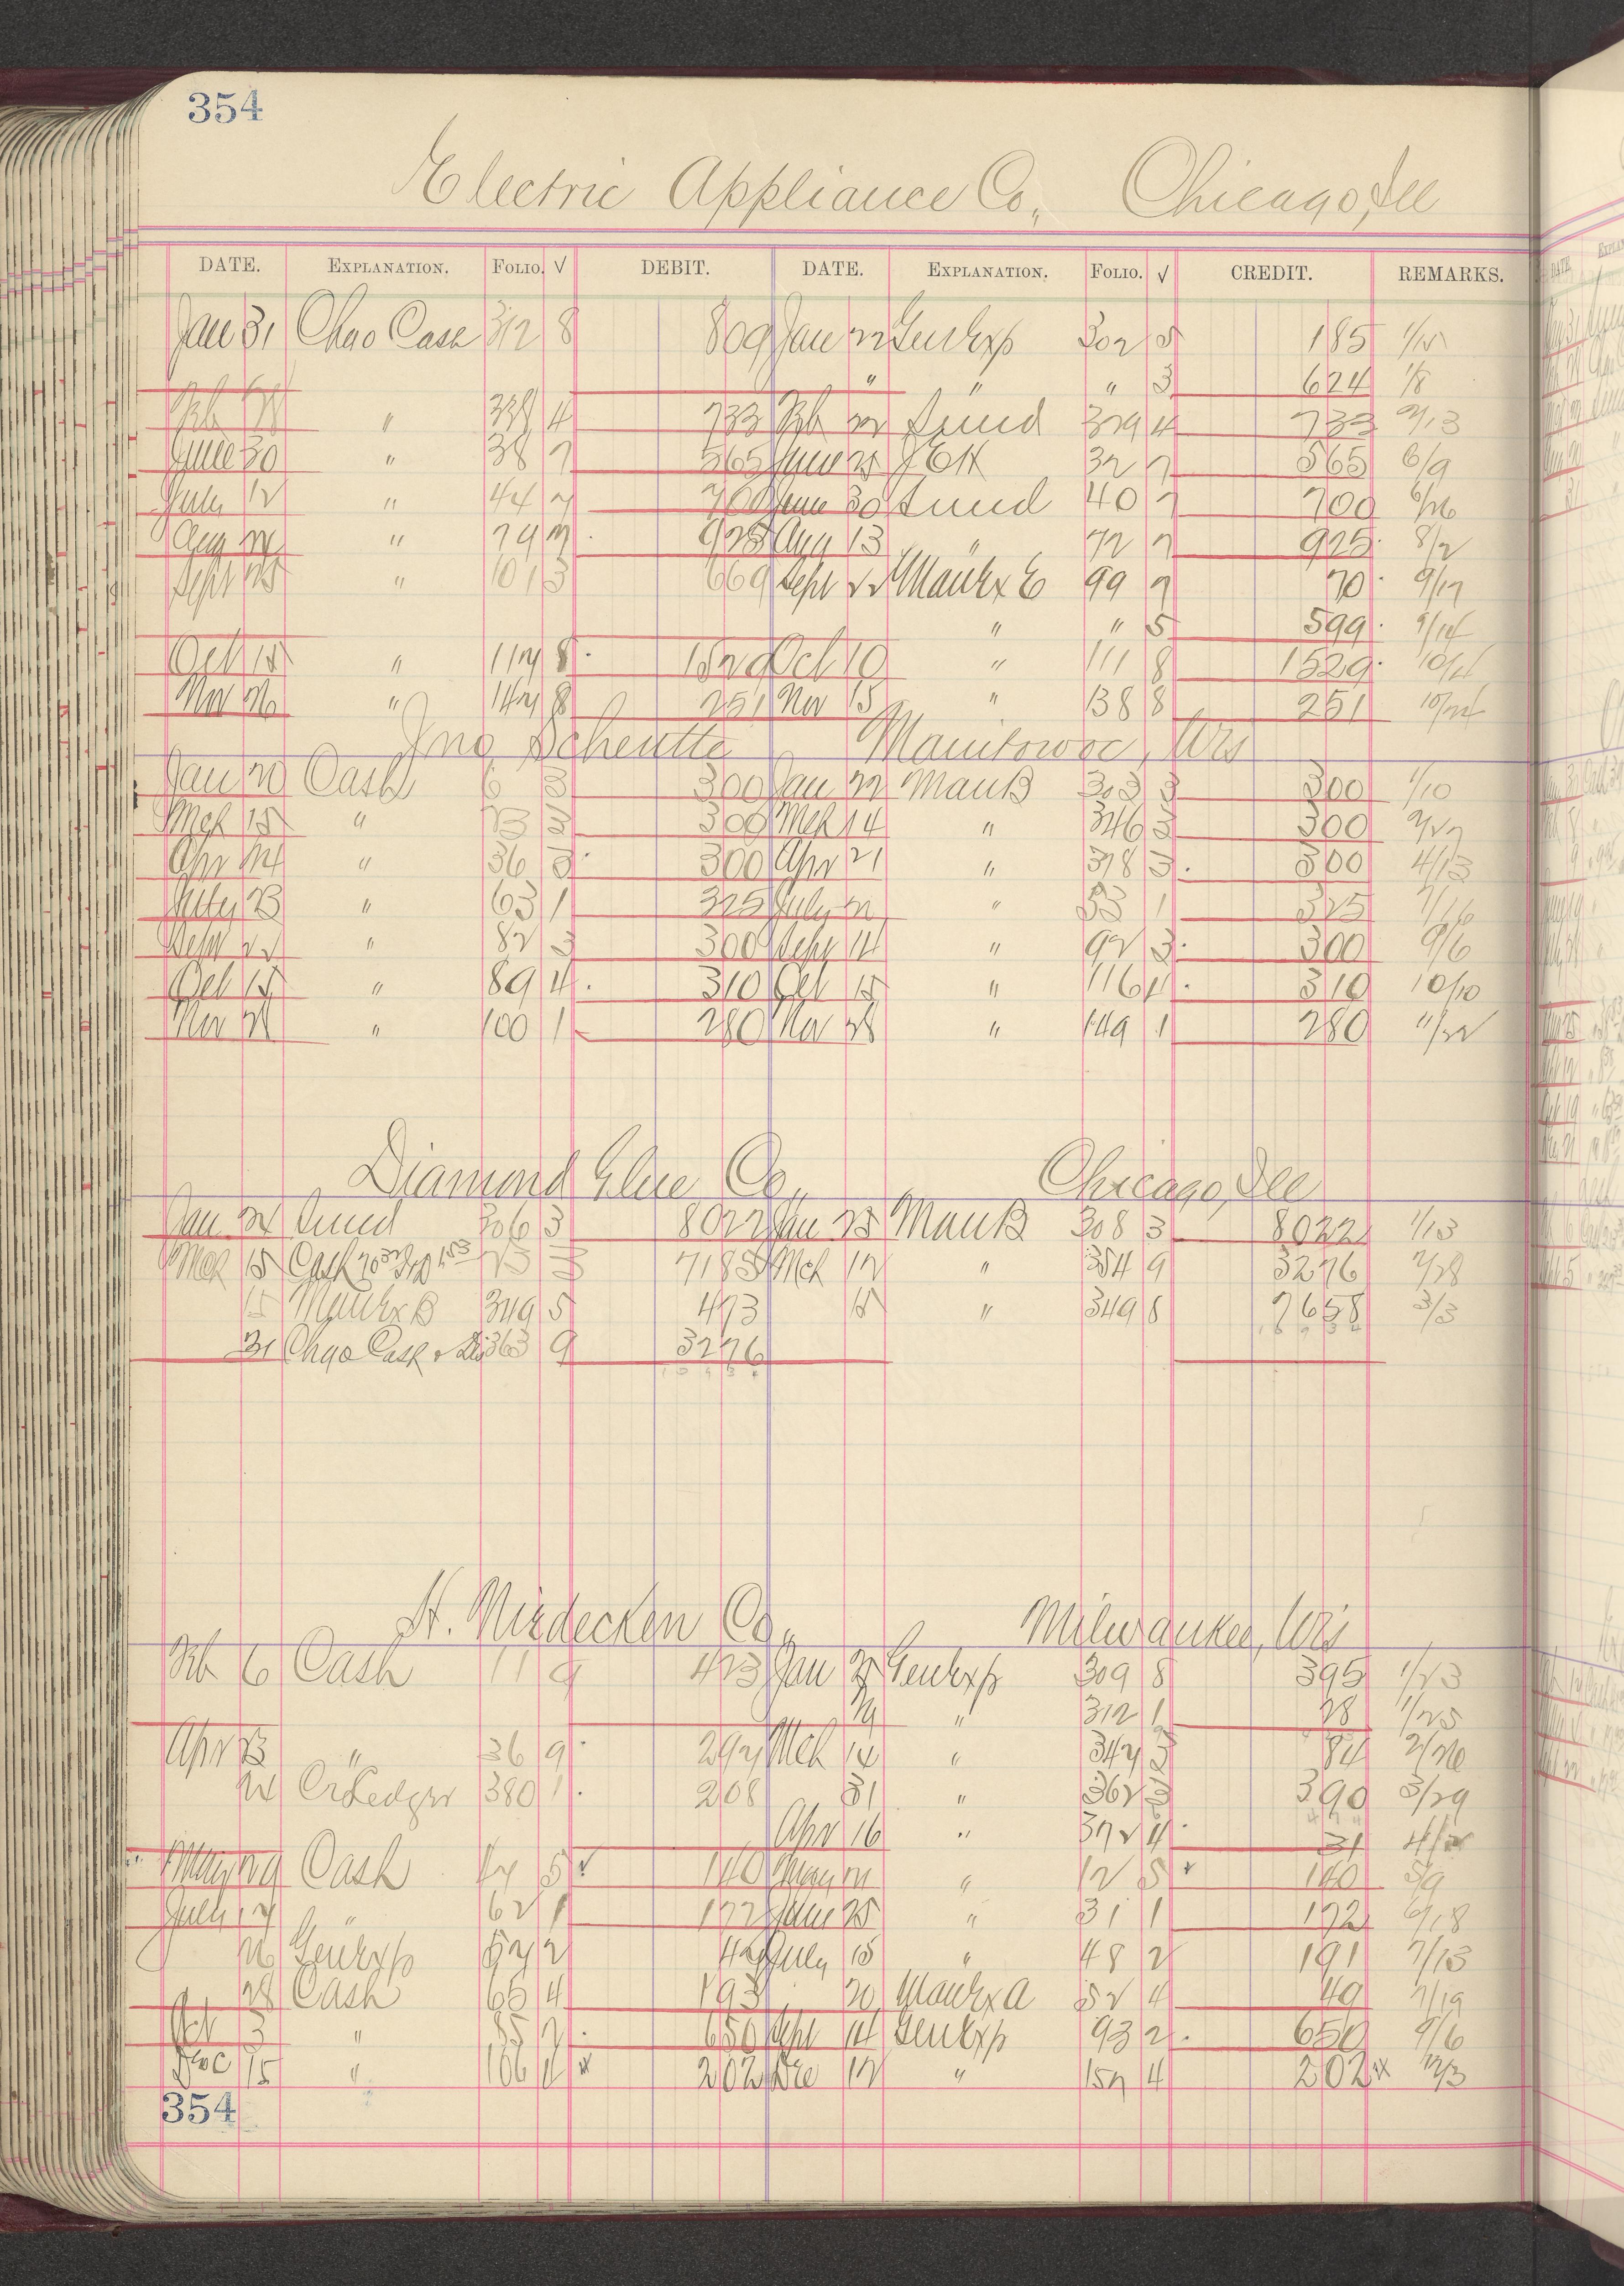 354
Electric Appliance Co., Chicago, Ill
DATE. EXPLANATION. FOLIO. √ DEBIT. DATE. EXPLANATION. FOLIO. √ CREDIT. REMARKS.
Jan 31 Chgo Cash 312 8 809 Jan 22 GenExp 302 5 185
" " " 3 624 1/8
Feb " 4 733 Feb 22 Sund 329 4 733 2/13
June 30 " 38 7 565 June 25 32 7 565 6/9
July 12 " 44 7 700 June 30 Sund 40 7 700 6/26
Aug " 74 7 925 Aug 13 " 72 7 925 8/2
Sept 25 " 101 3 669 Sept 22 ManExE 99 7 70 9/17
" " 5 599 9/14
Oct 15 " 117 8 1529 Oct 10 " 111 8 1529 10/4
Nov 26 " 147 8 251 Nov 15 " 138 8 251 10/24
Jno Scheutte Manitowoc, Wis
Jan 20 Cash 6 3 300 Jan 22 ManB 303 3 300 1/10
Mch 15 " 23 3 300 Mch 14 " 346 3 300 2/27
Apr 24 " 36 3 300 Apr 21 " 378 3 300 4/13
July 23 " 63 1 325 July 22 " 53 1 325 7/16
Sept 22 " 82 3 300 Sept 14 " 92 3 300 9/6
Oct 15 " 89 4 310 Oct 15 " 116 4 310 10/10
Nov 28 " 100 1 280 Nov 28 " 149 1 280 11/22
Diamond Glue Co., Chicago, Ill
Jan 24 Sund 306 3 8022 Jan 25 ManB 308 3 8022 1/13
Mch 15 Cash 23 7185 Mch 17 " 354 9 3276 2/28
15 ManExB 349 5 473 15 " 349 8 7658 3/3
31 Chgo Cash & Dis 363 9 3276
H. Niedecken Co., Milwaukee, Wis
Feb 6 Cash 11 9 423 Jan 27 GenExp 309 8 395 1/23
29 " 312 1 28 1/25
Apr 23 " 36 9 297 Mch 14 " 347 3 84 2/26
24 Cr Ledger 380 1 208 31 " 362 3 390 3/29
Apr 16 " 372 4 31
May 29 Cash 47 5 140 May 21 " 12 5 140 5/9
July 17 " 62 1 172 June 25 " 31 1 172 6/18
26 GenExp 57 2 42 July 15 " 48 2 191 7/13
28 Cash 66 4 193 20 ManExA 52 4 49 7/19
Oct 3 " 85 2 650 Sept 14 GenExp 93 2 650 9/6
Dec 15 " 106 4 202 Dec 12 " 157 4 202 12/3
354